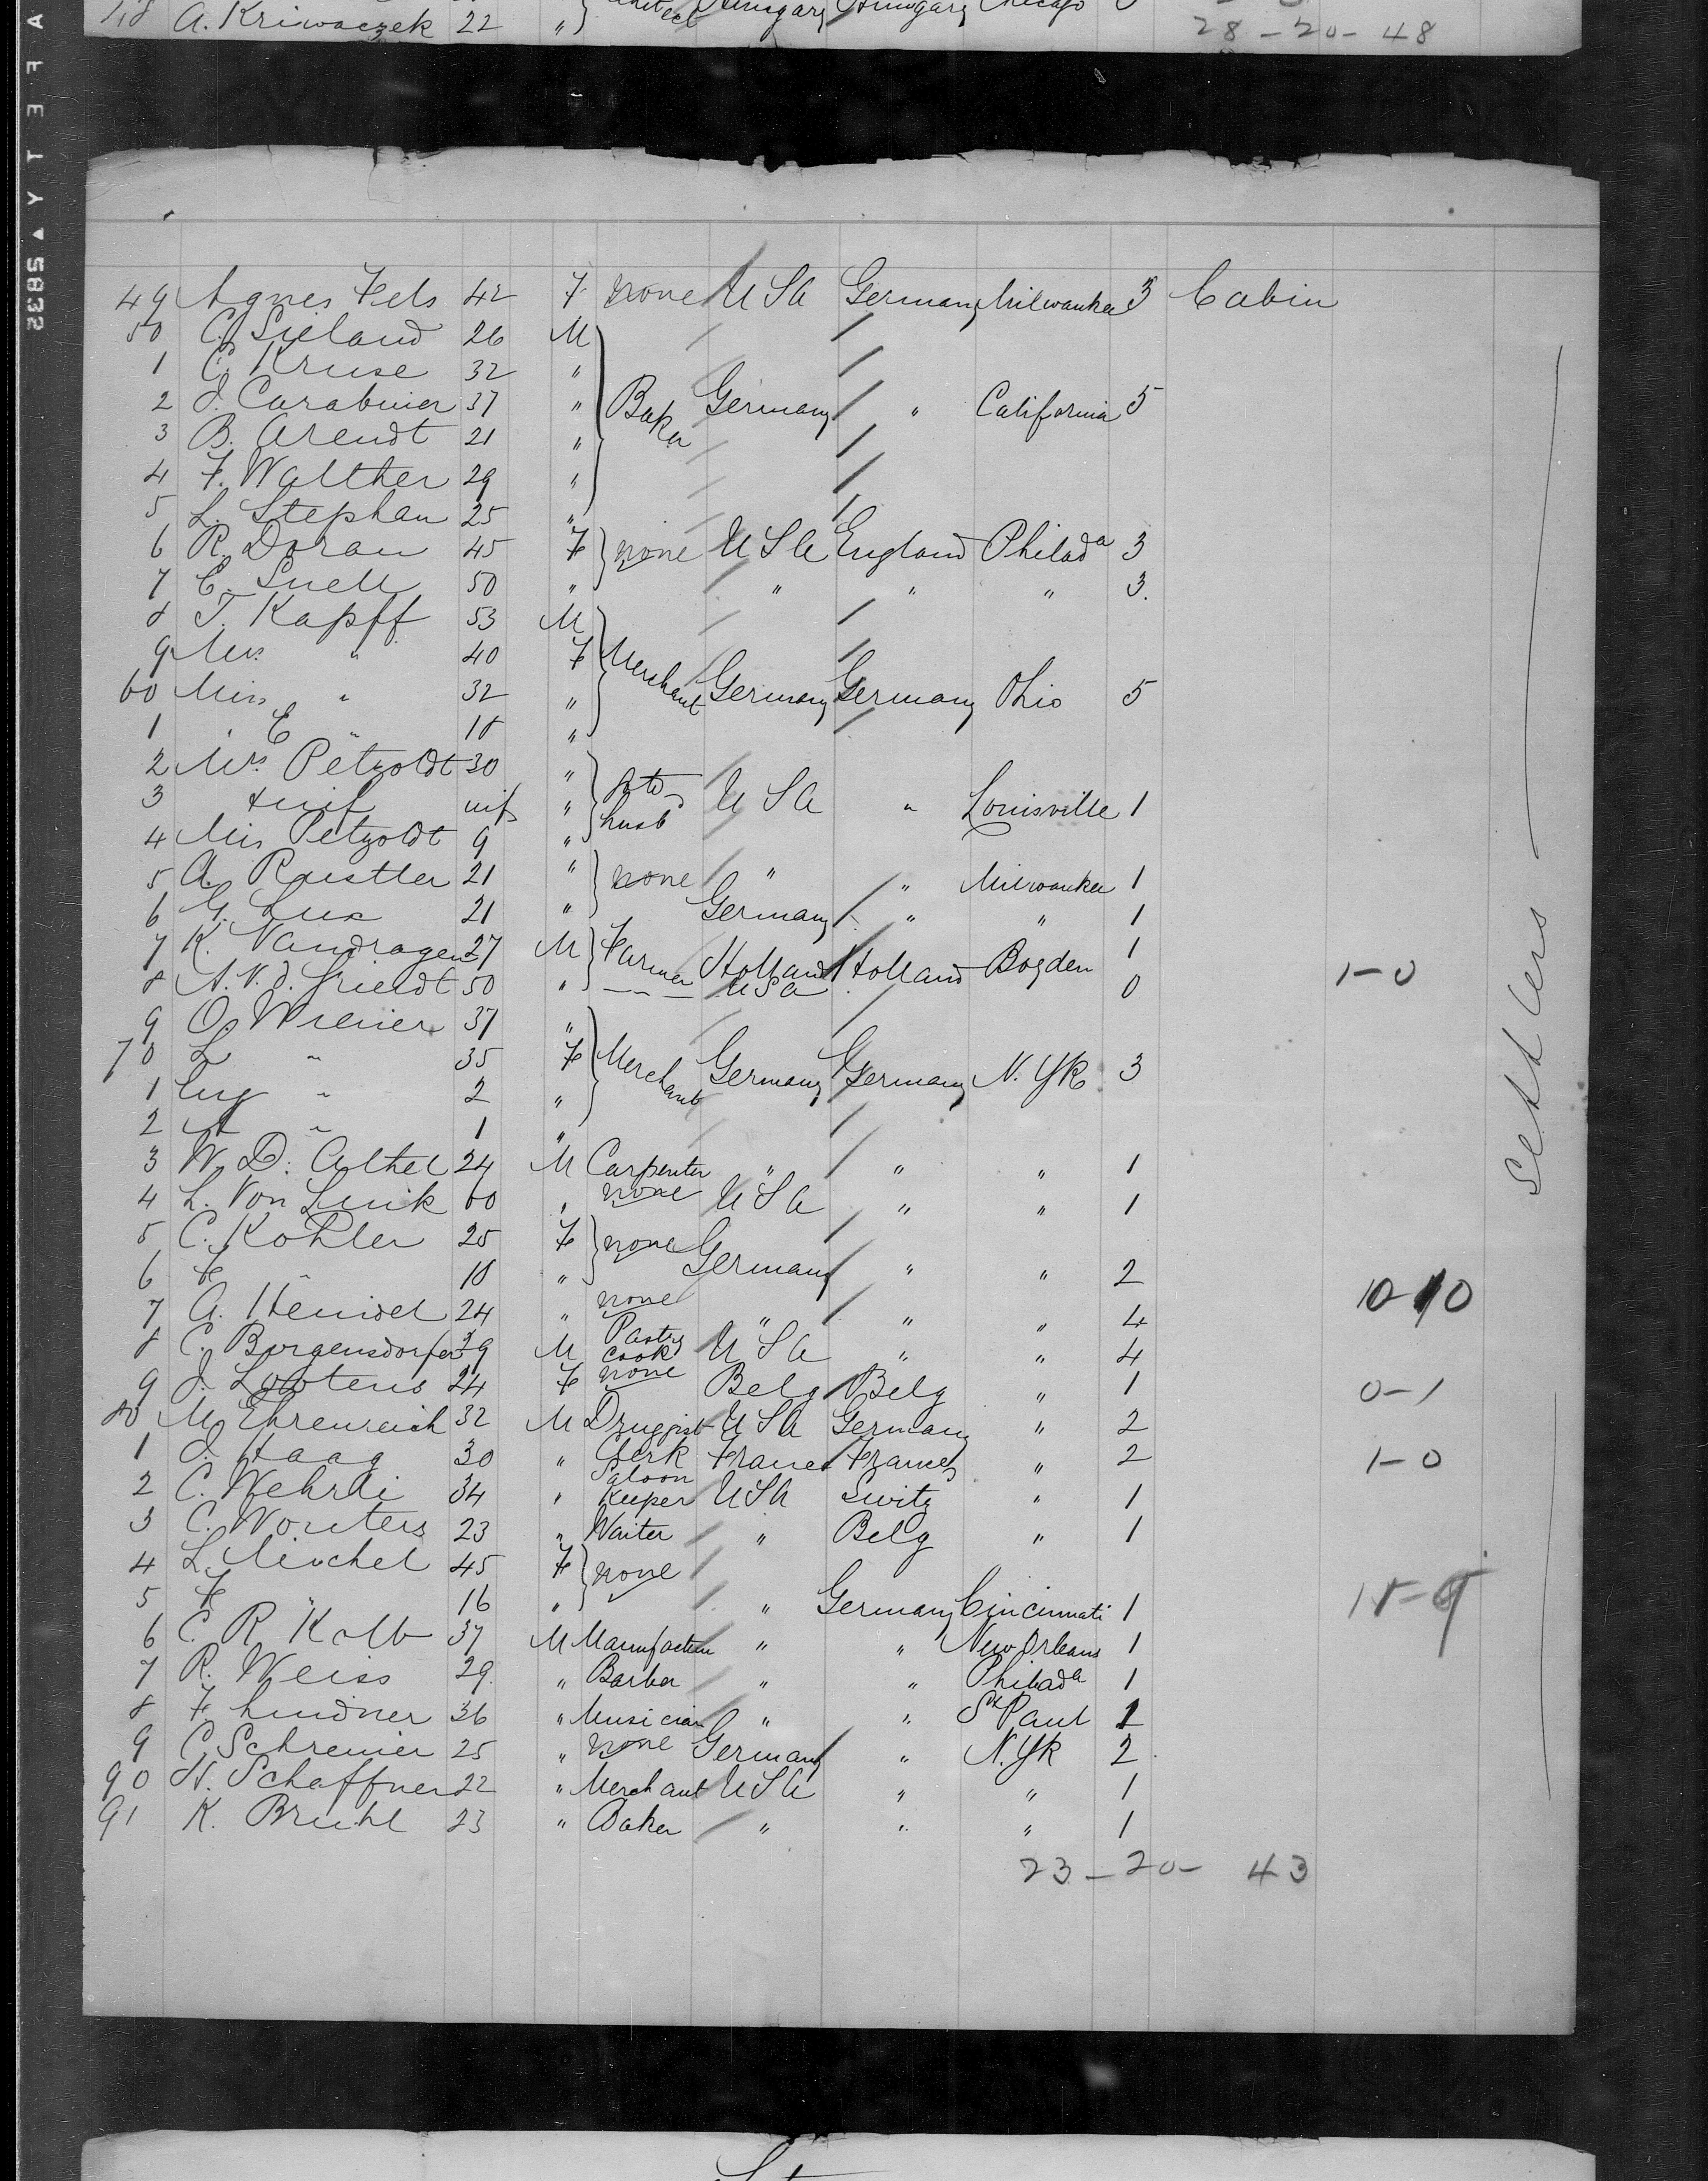 48 A. Kriwaczek 22 " Hungary Hungary Chicago
28 - 20 - 48
49 Agnes Fels 42 F none USA Germany Milwaukee 3 Cabin
50 C. Sieland 26 M
1 C. Kruse 32 "
2 J. Carabinier 37 " Baker Germany " California 5
3 B. Arendt 21 "
4 F. Walther 29 "
5 L. Stephan 25 "
6 R. Doran 45 F none USA England Philada 3
7 E. Snell 50 " " " " 3.
8 T. Kapff 53 M
9 Mrs " 40 F Merchant
60 Miss " 32 " Germany Germany Ohio 5
1 E " 18 "
2 Mrs Petzoldt 30 "
3 + inf inf " to husb USA " Louisville 1
4 Mis Petzoldt 9 "
5 A. Raestler 21 " none " " Milwaukee 1
6 G. Lux 21 " Germany " " 1
7 K. Vandragen 27 M Farmer Holland Holland Bogden 1
8 A. V. d. Griendt 50 " — — — USA 0 1-0
9 O. Wiener 37 "
70 L " 35 F Merchant Germany Germany N. Yk 3
1 Eug " 2 "
2 A " 1 "
3 W. D. Althel 24 M Carpenter " " " 1
4 L. Von Link 60 " none USA " " 1
5 C. Kohler 25 F none Germany
6 F " 18 " " " 2
7 A. Heinsel 24 " none " " " 4 10-10
8 C. Borgensdorfer 39 M Pastry cook USA " " 4
9 J. Lootens 24 F none Belg Belg " 1 0-1
80 M. Ehrenreich 32 M Druggist USA Germany " 2
1 J. Haag 30 " Clerk France France " 2 1-0
2 C. Wehrli 34 " Saloon Keeper USA Switz " 1
3 C. Wouters 23 " Waiter " Belg " 1
4 L. Mischel 45 F none
5 F " 16 " " Germany Cincinnati 1
6 C. R. Kolb 37 M Manufacturer " " New Orleans 1
7 R. Weiss 29 " Barber " " Philada 1
8 F. Lindner 36 " Musician " " St Paul 1
9 C. Schreiner 25 " none Germany " N. Yk 2
90 N. Schaffner 22 " Merchant USA " " 1
91 K. Bruhl 23 " Baker " " " 1
23 - 20 - 43
Settlers
SAFETY ▲ 5832